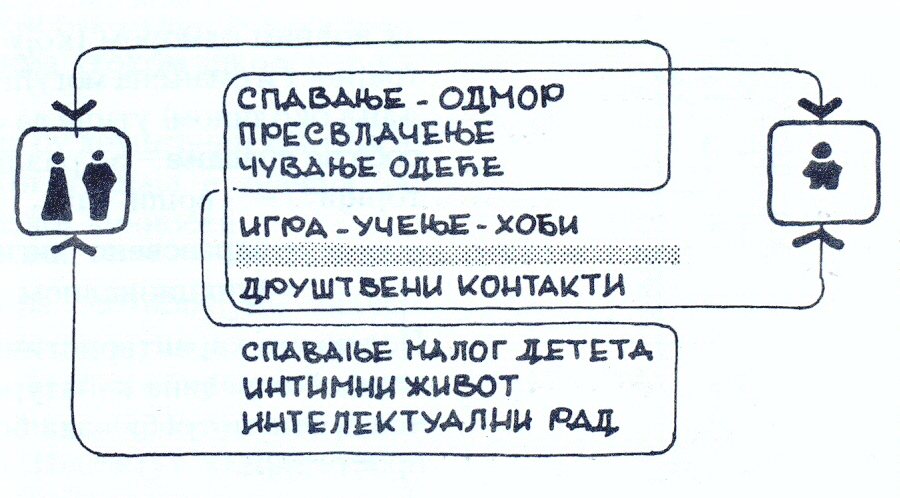 СПАВАЊЕ - ОДМОР
ПРЕСВЛАЧЕЊЕ
ЧУВАЊЕ ОДЕЋЕ
ИГРА - УЧЕЊЕ - ХОБИ
ДРУШТВЕНИ КОНТАКТИ
СПАВАЊЕ МАЛОГ ДЕТЕТА
ИНТИМНИ ЖИВОТ
ИНТЕЛЕКТУАЛНИ РАД